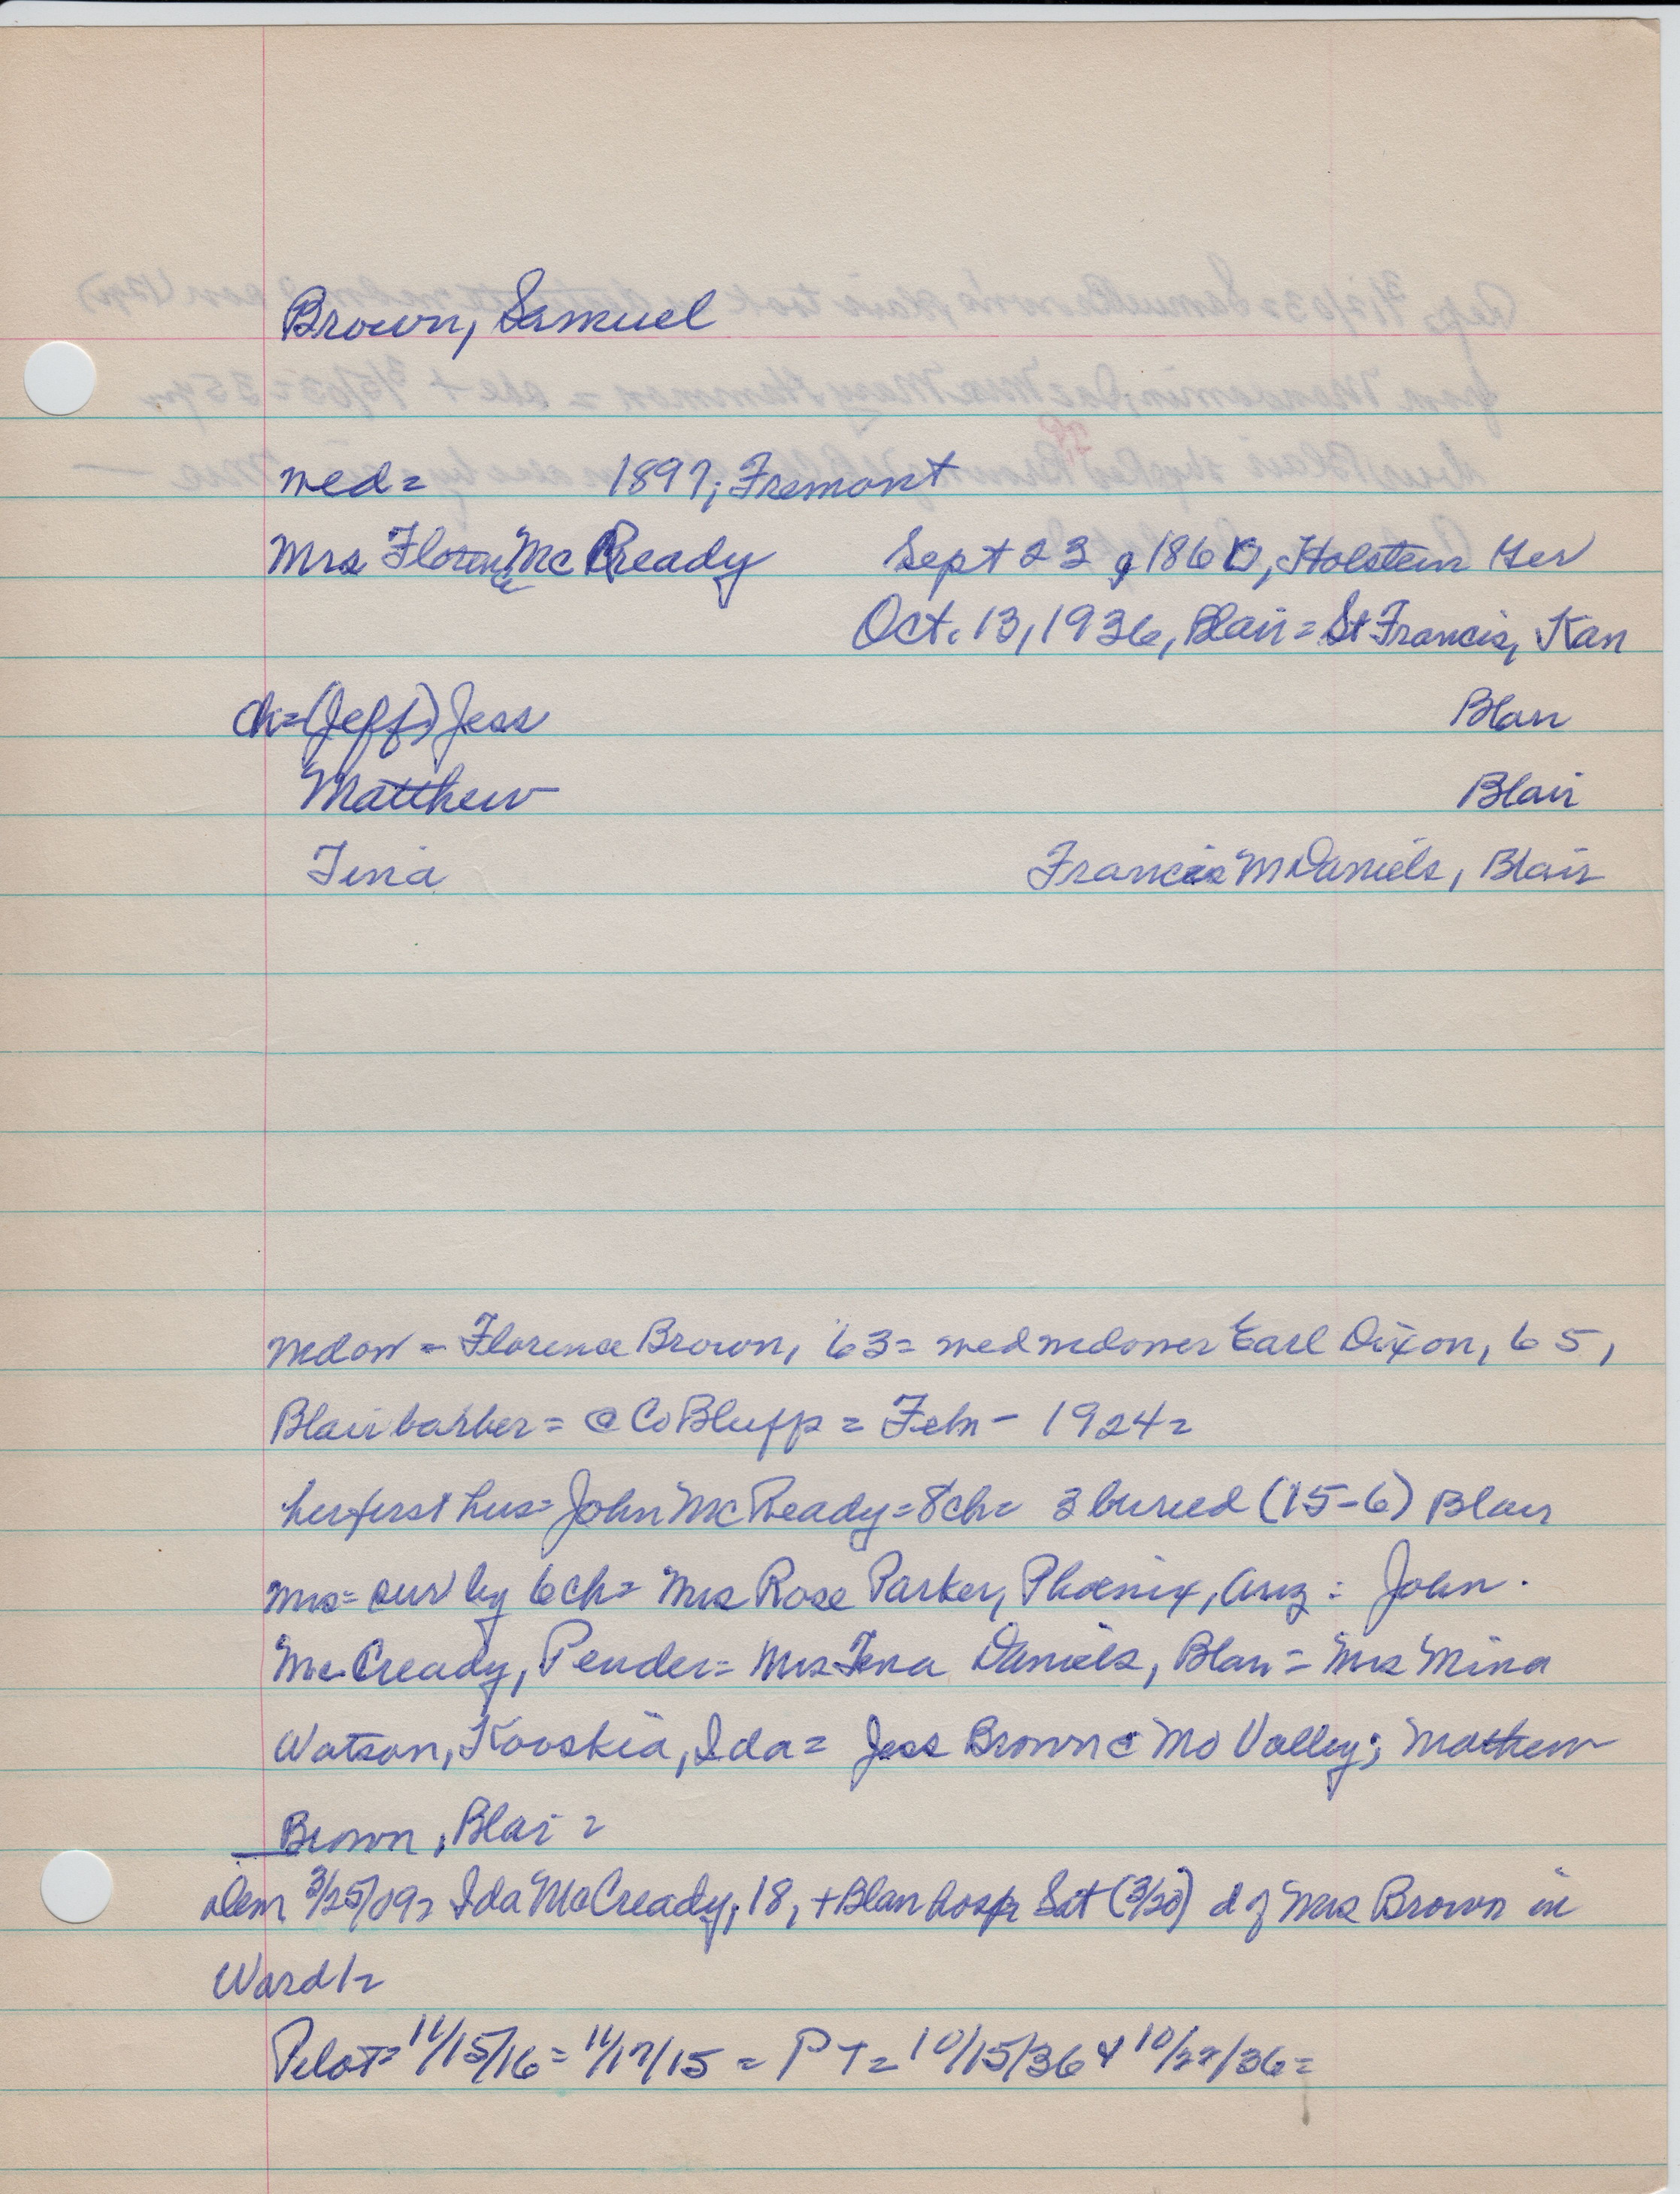 Brown, Samuel
wed = 1897; Fremont
Mrs Florence McCready Sept 23, 1860, Holstein Ger
Oct. 13, 1936, Blair = St Francis, Kan
ch = (Jeff) Jess Blair
Matthew Blair
Tena Francis McDaniels, Blair
widow = Florence Brown, 63 = wed widower Earl Dixon, 65,
Blair barber = @ Co Bluffs = Febr - 1924 =
her first hus = John McCready = 8 ch = 3 buried (15-6) Blair
Mrs = surv by 6 ch = Mrs Rose Parker, Phoenix, Ariz = John
McCready, Pender = Mrs Tena Daniels, Blair = Mrs Mina
Watson, Kooskia, Ida = Jess Brown Mo Valley; Mathew
Brown, Blair =
Dem 3/25/09 = Ida McCready, 18, + Blair hosp Sat (3/20) d of Mrs Brown in
Ward 1 =
Pilot = 11/15/16 = 11/17/15 = P T = 10/15/36 & 10/22/36 =